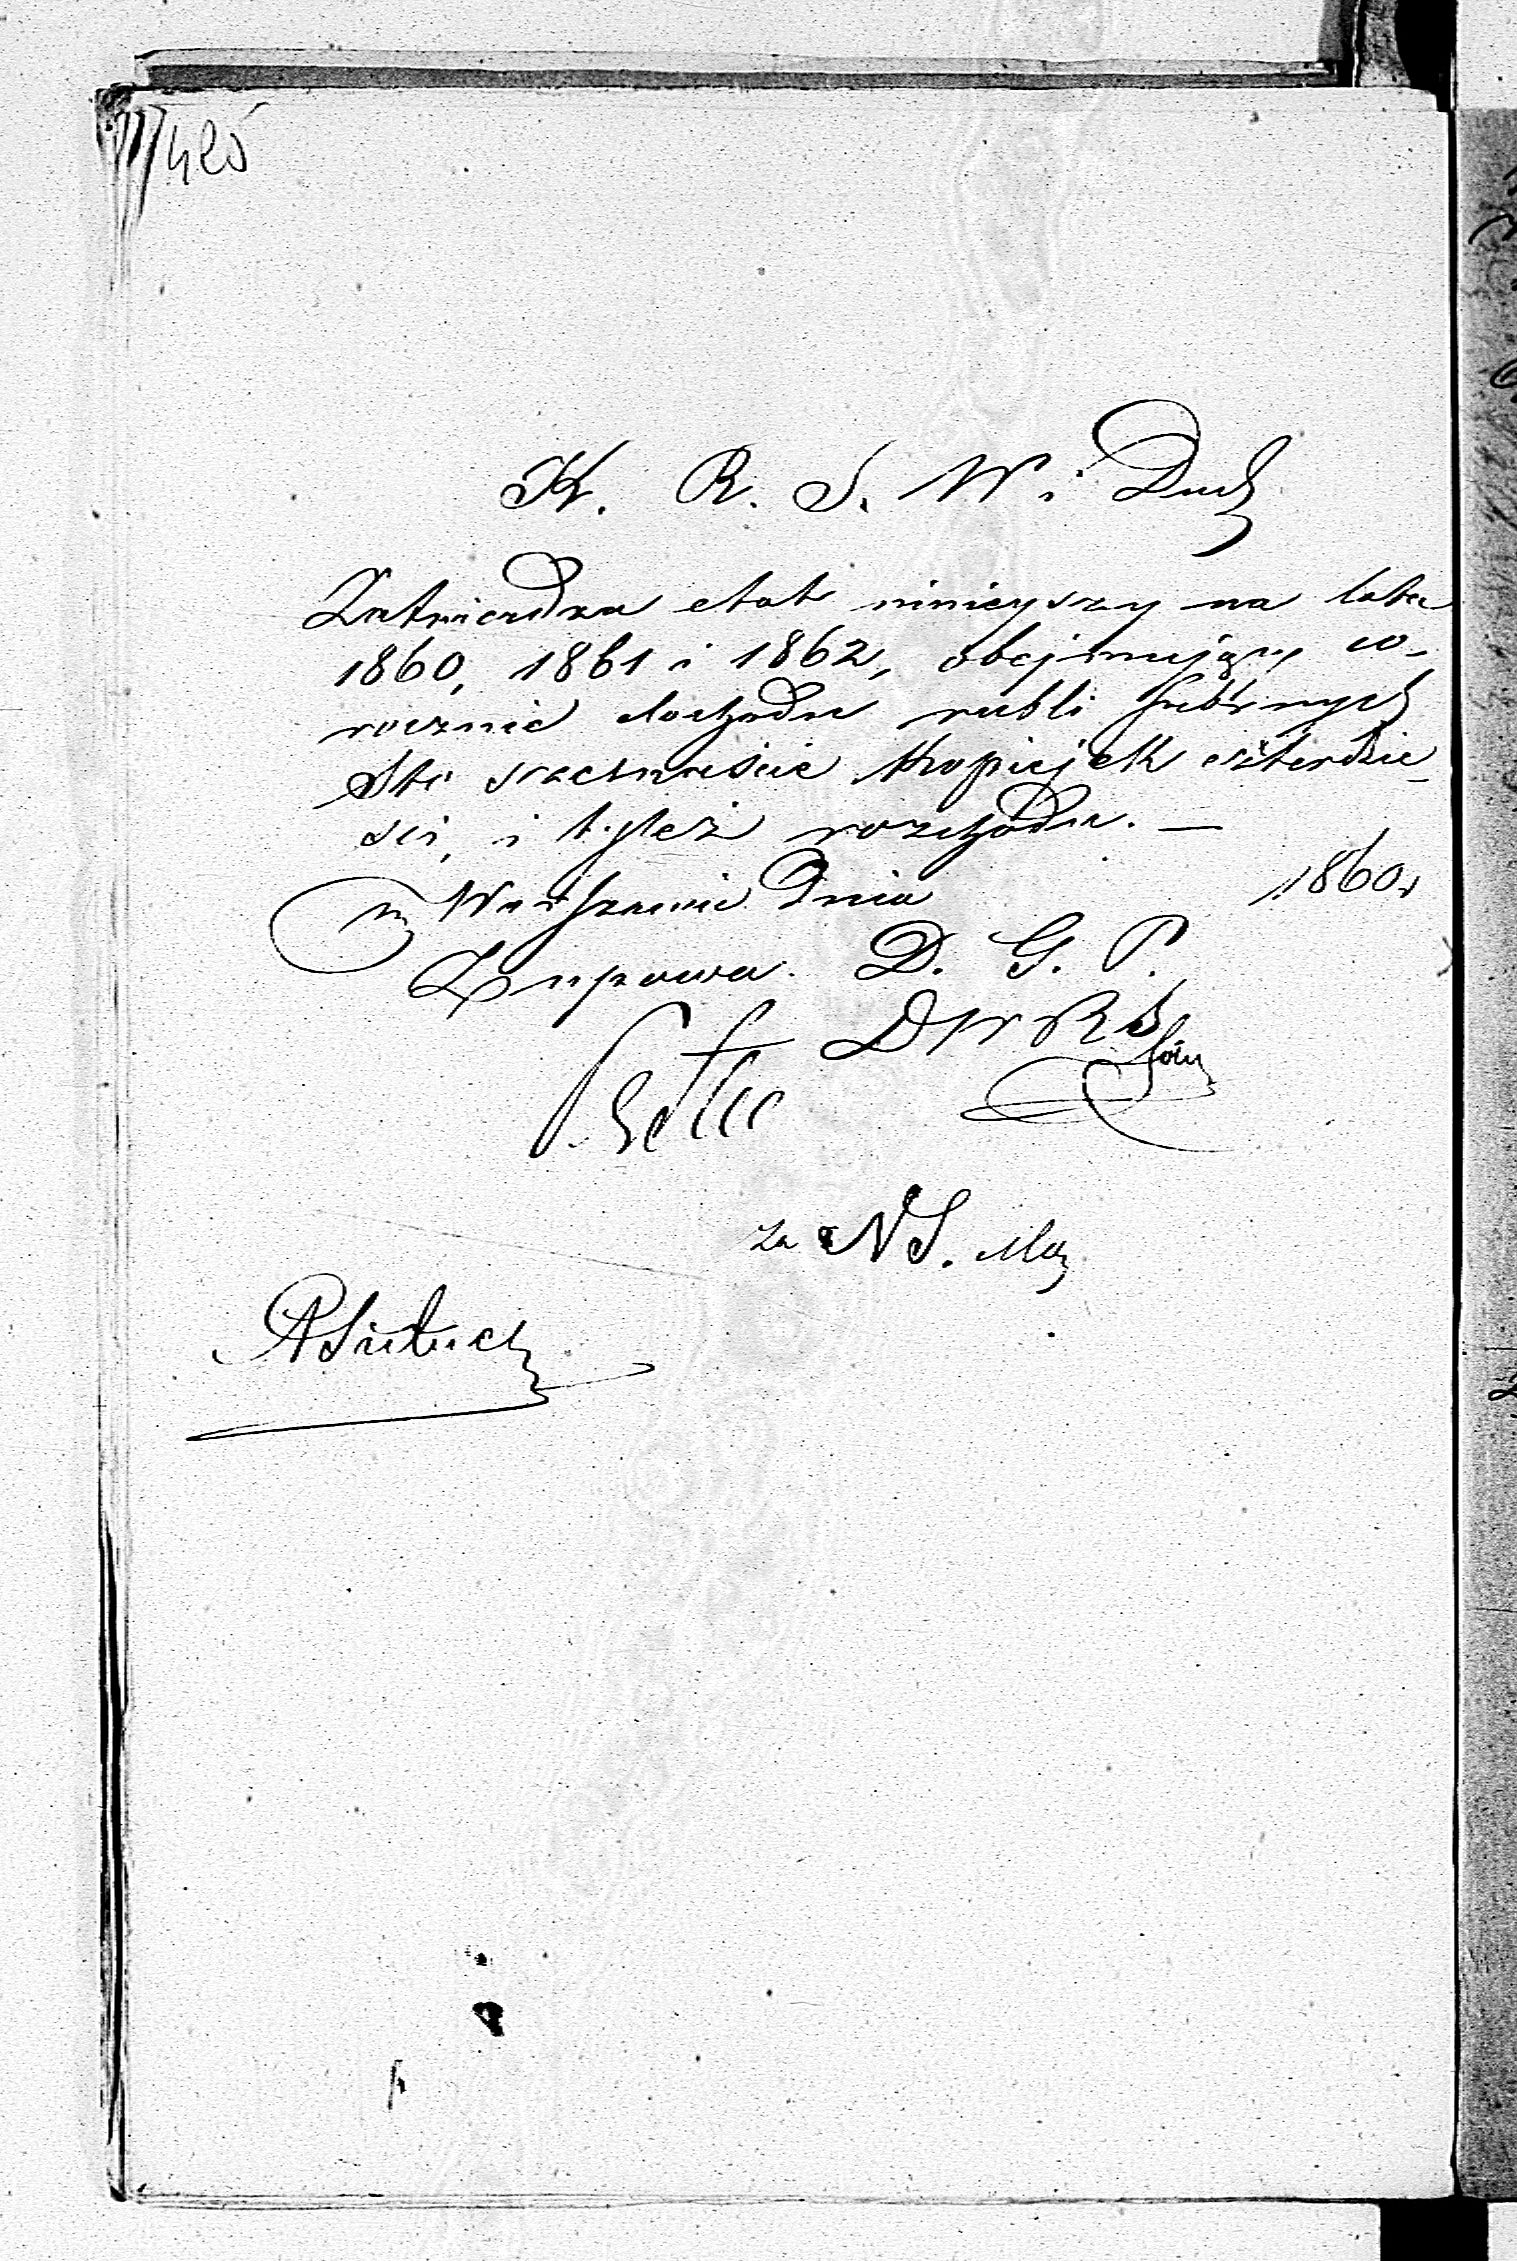 K. R. S. W. i Duch
Zatwierdza etat niniejszy na lata
1860, 1861 i 1862, obejmujący co-
rocznie dochodu rubli srebrnych
Sto szesnaście kopiejek czterdzie-
ści, i tyleż rozchodu. —
w Warszawie Dnia 1860 r
Z upoważ. D. G. P.
D W R S
za N S.